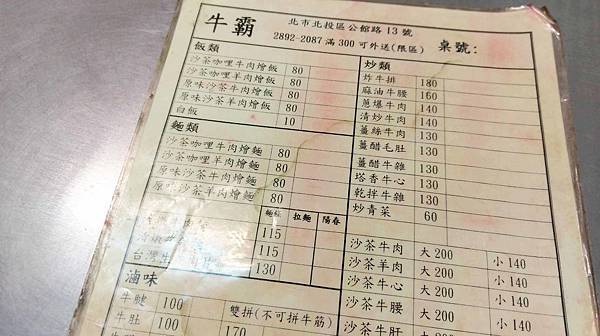 牛霸
北市北投區公館路13號
2892-2087滿300可外送(限區)
桌號:
飯類
沙茶咖哩牛肉燴飯 80
沙茶咖哩羊肉燴飯 80
原味沙茶牛肉燴飯 80
原味沙茶羊肉燴飯 80
白飯 10
麵類
沙茶咖哩牛肉燴麵 80
沙茶咖哩羊肉燴麵 80
原味沙茶牛肉燴麵 80
原味沙茶羊肉燴麵 80
拉麵 陽春
115
115
130
滷味
牛腱 100
牛肚 100
雙拼(不可拼牛筋)
170
炒類
炸牛排 180
麻油牛腰 160
蔥爆牛肉 140
清炒牛肉 140
薑絲牛肉 130
薑醋毛肚 130
薑醋牛雜 130
塔香牛心 130
乾拌牛雜 130
炒青菜 60
沙茶牛肉 大200 小140
沙茶羊肉 大200 小140
沙茶牛心 大200 小140
沙茶牛腰 大200 小140
沙茶牛肝 大200 小140